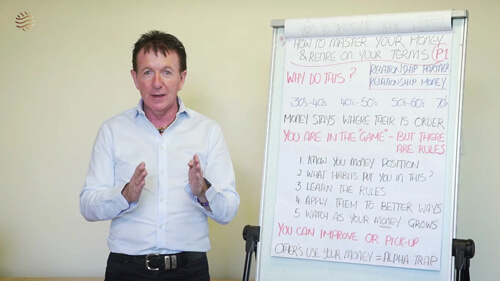 HOW TO MASTER YOUR MONEY
& RETIRE ON YOUR TERMS (P1
WHY DO THIS? RELATIONSHIP PARTNER
RELATIONSHIP MONEY
30s-40s 40s-50s 50s-60s 70s
MONEY STAYS WHERE THEIR IS ORDER
YOU ARE IN THE "GAME" - BUT THERE
ARE RULES
1 KNOW YOU MONEY POSITION
2 WHAT HABITS PUT YOU IN THIS?
3 LEARN THE RULES
4 APPLY THEM TO BETTER WAYS
5 WATCH AS YOUR MONEY GROWS
YOU CAN IMPROVE OR PICK-UP
OTHERS USE YOUR MONEY = ALPHA TRAP